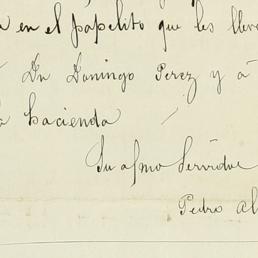 en el papelito que les lleva
Dn Domingo Perez y á
hacienda
Su afmo Servidor
Pedro Al